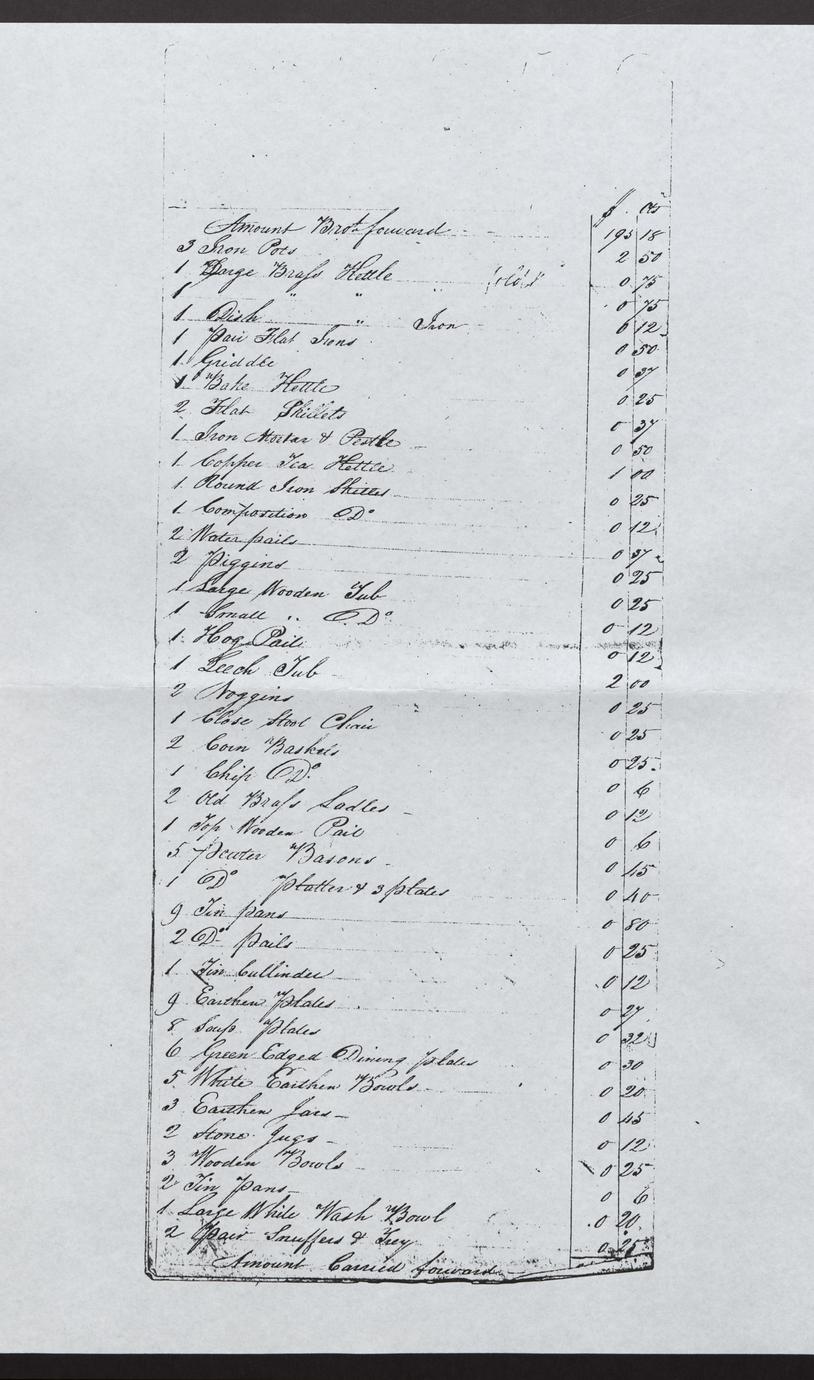 $ . Cts
Amount Brot. forward 195 18
3 Iron Pots 2 50
1 Large Brass Kettle 0 75
1 " " 0 75
1 Dish " Iron 6 12
1 Pair Flat Irons 0 50
1 Griddle 0 37
1 Bake Kettle 0 25
2 Flat Skillets 0 37
1 Iron Mortar & Pestle 0 50
1 Copper Tea Kettle 1 00
1 Round Iron Skillet 0 25
1 Composition Do 0 12
2 Water pails 0 37
2 Piggins 0 25
1 Large Wooden Tub 0 25
1 Small " Do 0 12
1 Hog Pail 0 12
1 Leech Tub 2 00
2 Noggins 0 25
1 Close Stool Chair 0 25
2 Corn Baskets 0 25
1 Chip Do 0 6
2 Old Brass Ladles 0 12
1 Top Wooden Pail 0 6
5 Pewter Basons 0 45
1 Do Platter & 3 plates 0 40
9 Tin pans 0 80
2 Do pails 0 25
1 Tin Cullinder 0 12
9 Earthen Plates 0 27
8 Soup Plates 0 32
6 Green Edged Dining plates 0 30
5 White Earthen Bowls 0 20
3 Earthen Jars 0 45
2 Stone Jugs 0 12
3 Wooden Bowls 0 25
2 Tin Pans 0 6
1 Large White Wash Bowl 0 20
2 Pair Snuffers & Trey 0 25
Amount Carried forward